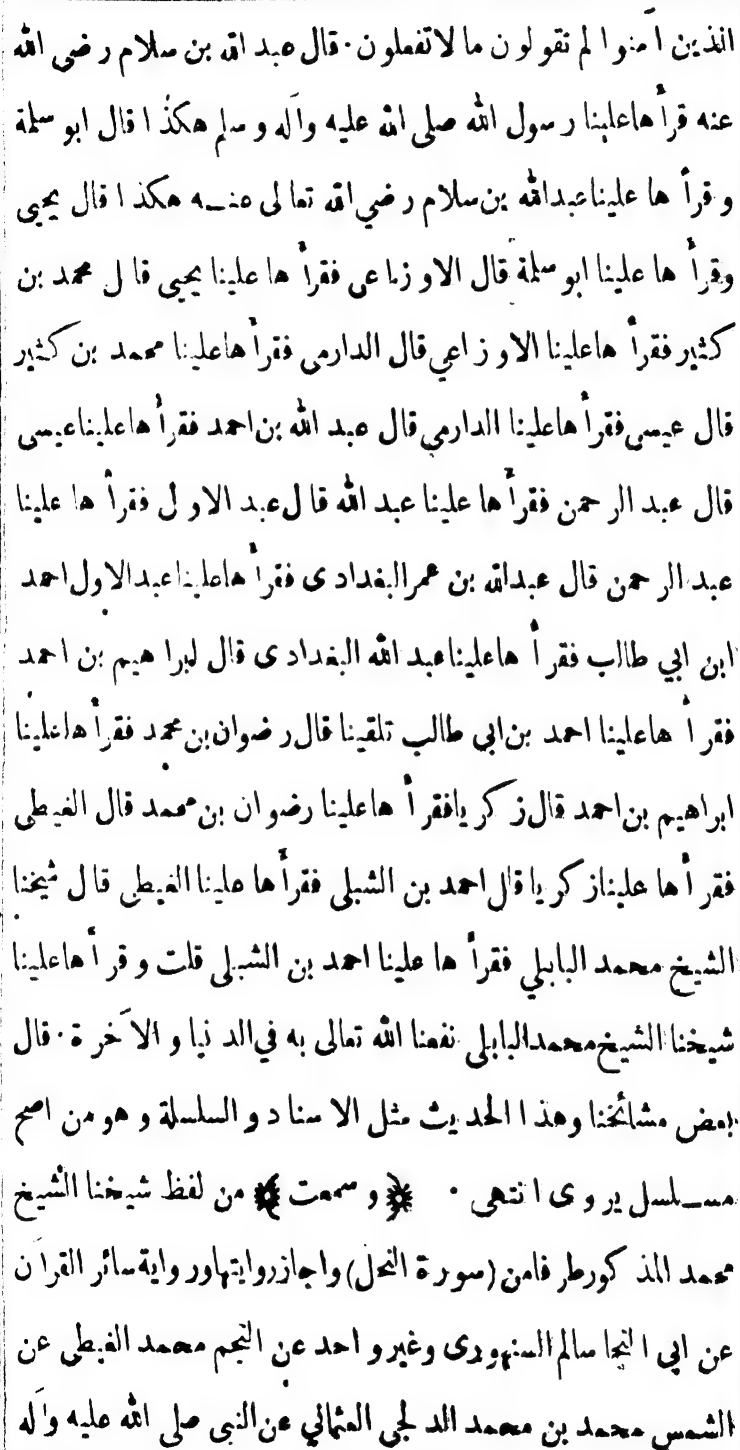 الذين آمنوا لم تقولون ما لا تفعلون ۰ قال عبد الله بن سلام رضى الله
عنه قرأها علينا رسول الله صلى الله عليه وآله وسلم هكذا قال ابو سلمة
و قرأ ها علينا عبدالله بن سلام رضي الله تعالى عنـه هكذا قال يحيى
وقرأ ها علينا ابو سلمة قال الاوزاعى فقرأ ها علينا يحيى قال محمد بن
كثير فقرأ ها علينا الاوزاعي قال الدارمى فقرأ ها علينا محمد بن كثير
قال عيسى فقرأ ها علينا الدارمي قال عبد الله بن احمد فقرأ ها علينا عيسى
قال عبد الرحمن فقرأ ها علينا عبد الله قال عبد الاول فقرأ ها علينا
عبد الرحمن قال عبدالله بن عمر البغدادى فقرأ ها علينا عبدالاول احمد
ابن ابي طالب فقرأ ها علينا عبد الله البغدادى قال ابراهيم بن احمد
فقرأ ها علينا احمد بن ابى طالب تلقينا قال رضوان بن محمد فقرأ ها علينا
ابراهيم بن احمد قال زكريا فقرأ ها علينا رضوان بن محمد قال الغيطى
فقرأ ها علينا زكريا قال احمد بن الشبلى فقرأ ها علينا الغيطى قال شيخنا
الشيخ محمد البابلي فقرأ ها علينا احمد بن الشبلى قلت و قرأ ها علينا
شيخنا الشيخ محمد البابلى نفعنا الله تعالى به في الدنيا و الآخرة ۰ قال
بعض مشائخنا وهذا الحديث مثل الاسناد و السلسلة و هو من اصح
مسـلسل يروى انتهى ۰ ﴿ و سمعت ﴾ من لفظ شيخنا الشيخ
محمد المذكور طرفا من (سورة النحل) واجاز روايتها ورواية سائر القرآن
عن ابى النجا سالم السنهورى وغير واحد عن النجم محمد الغيطى عن
الشمس محمد بن محمد الدلجى العثمانى عن النبى صلى الله عليه وآله